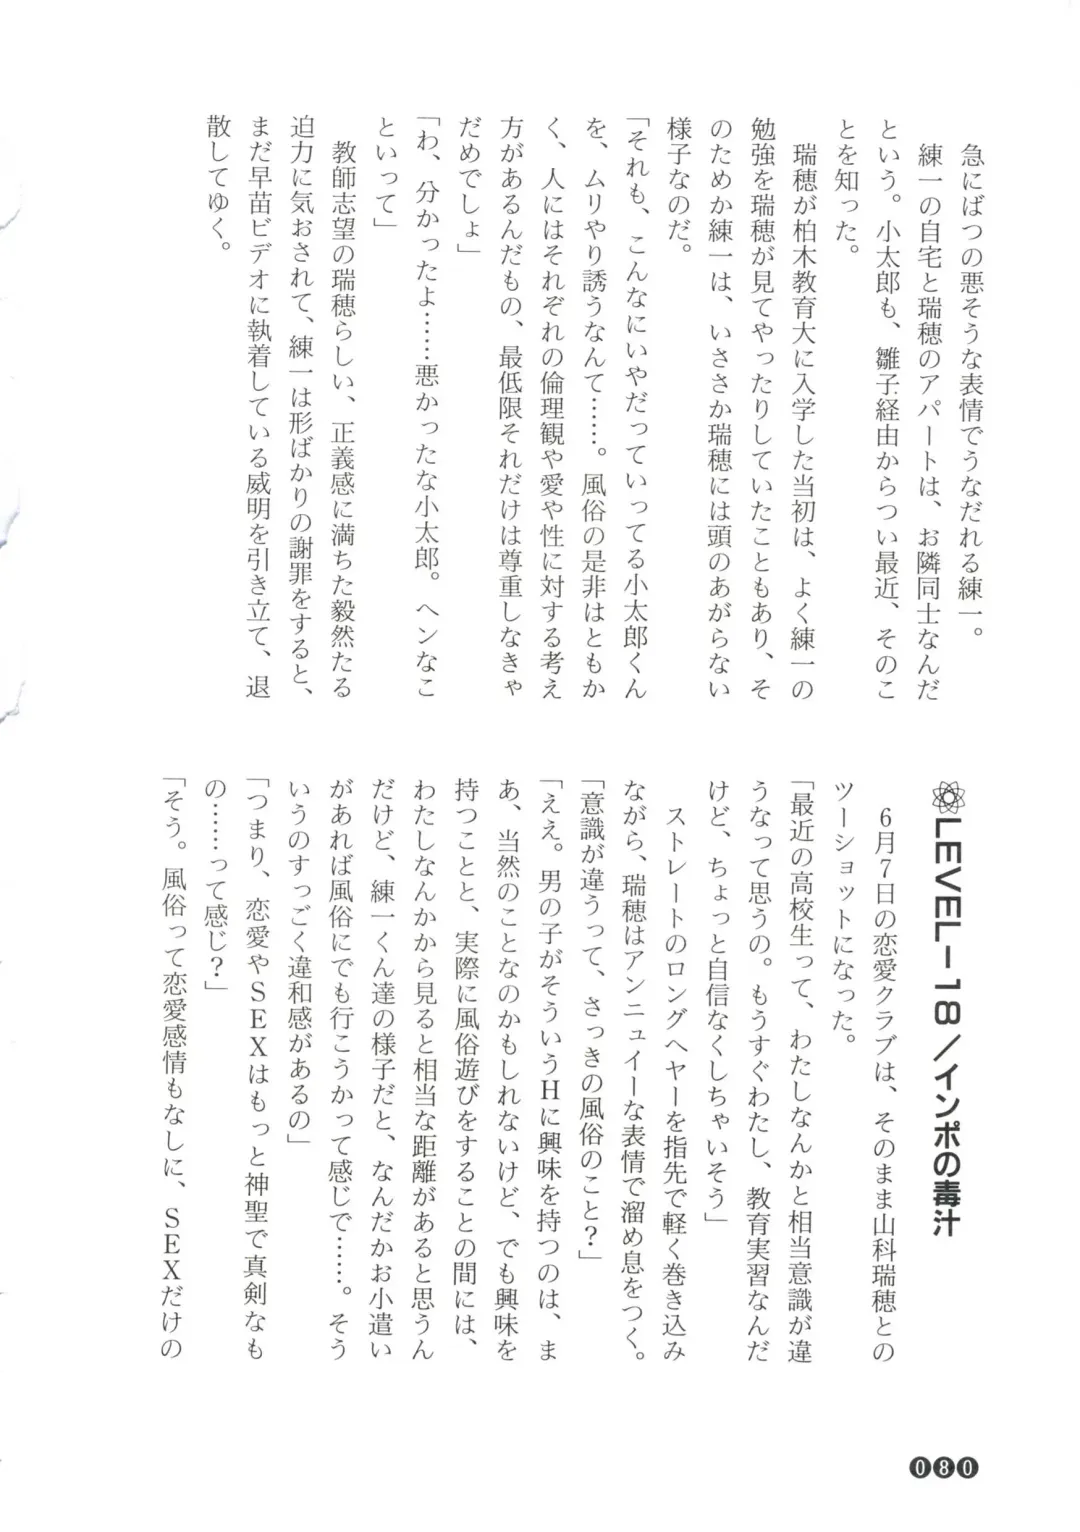 急にばつの悪そうな表情でうなだれる練一。
練一の自宅と瑞穂のアパートは、お隣同士なんだ
という。小太郎も、雛子経由からつい最近、そのこ
とを知った。
瑞穂が柏木教育大に入学した当初は、よく練一の
勉強を瑞穂が見てやったりしていたこともあり、そ
のためか練一は、いささか瑞穂には頭のあがらない
様子なのだ。
「それも、こんなにいやだっていってる小太郎くん
を、ムリやり誘うなんて……。風俗の是非はともか
く、人にはそれぞれの倫理観や愛や性に対する考え
方があるんだもの、最低限それだけは尊重しなきゃ
だめでしょ」
「わ、分かったよ……悪かったな小太郎。ヘンなこ
といって」
教師志望の瑞穂らしい、正義感に満ちた毅然たる
迫力に気おされて、練一は形ばかりの謝罪をすると、
まだ早苗ビデオに執着している威明を引き立て、退
散してゆく。
LEVEL－18／インポの毒汁
6月7日の恋愛クラブは、そのまま山科瑞穂との
ツーショットになった。
「最近の高校生って、わたしなんかと相当意識が違
うなって思うの。もうすぐわたし、教育実習なんだ
けど、ちょっと自信なくしちゃいそう」
ストレートのロングヘヤーを指先で軽く巻き込み
ながら、瑞穂はアンニュイーな表情で溜め息をつく。
「意識が違うって、さっきの風俗のこと？」
「ええ。男の子がそういうHに興味を持つのは、ま
あ、当然のことなのかもしれないけど、でも興味を
持つことと、実際に風俗遊びをすることの間には、
わたしなんかから見ると相当な距離があると思うん
だけど、練一くん達の様子だと、なんだかお小遣い
があれば風俗にでも行こうかって感じで……。そう
いうのすっごく違和感があるの」
「つまり、恋愛やSEXはもっと神聖で真剣なも
の……って感じ？」
「そう。風俗って恋愛感情もなしに、SEXだけの
080